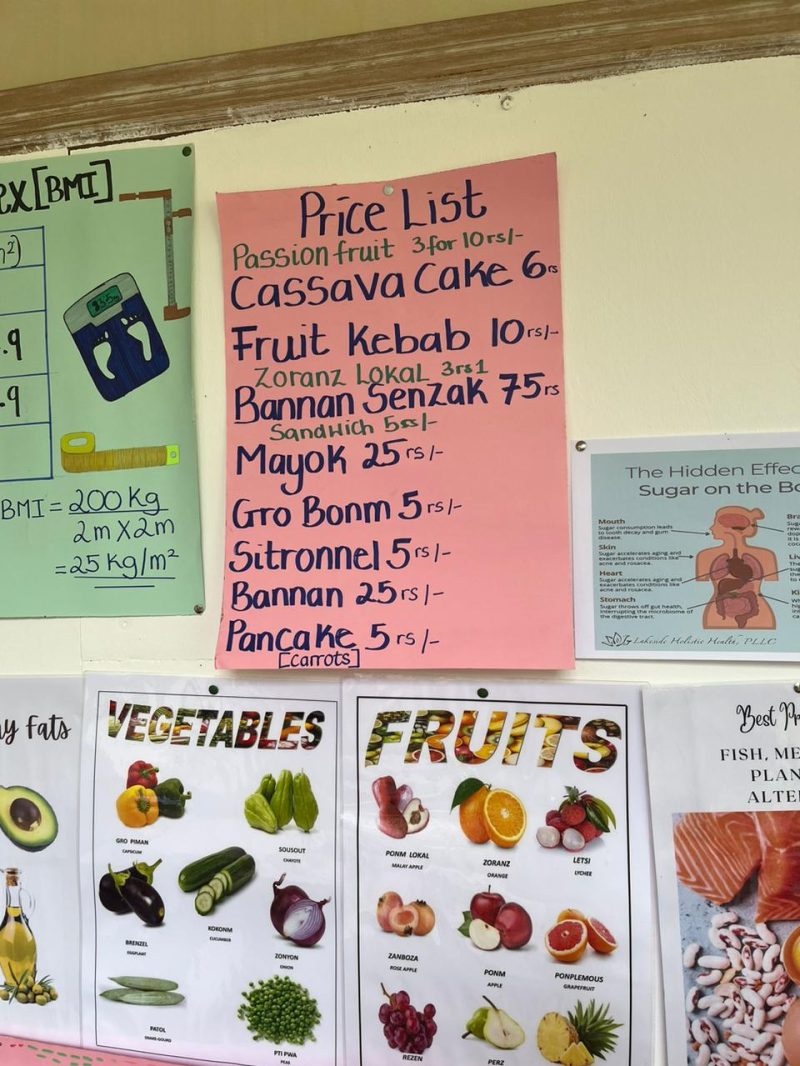 ex [BMI]
BMI = 200 Kg
2m X 2m
= 25 Kg/m²
Price List
Passion fruit 3 for 10 rs/-
Cassava Cake 6rs
Fruit Kebab 10rs/-
Zoranz Lokal 3rs 1
Bannan Senzak 75rs
Sandwich
Mayok 25 rs/-
Gro Bonm 5 rs/-
Sitronnel 5 rs/-
Bannan 25 rs/-
Pancake 5 rs/-
[Carrots]
The Hidden Effec
Sugar on the Bo
Mouth
Sugar consumption leads
to tooth decay and gum
disease.
Skin
Sugar accelerates aging and
exacerbates conditions like
acne and rosacea.
Heart
Sugar accelerates aging and
exacerbates conditions like
acne and rosacea.
Stomach
Sugar throws off gut health,
interrupting the microbiome of
the digestive tract.
Lakeside Holistic Health, PLLC
y Fats
VEGETABLES
GRO PIMAN
CAPSICUM
SOUSOUT
CHAYOTE
BRENZEL
EGGPLANT
KONKONM
CUCUMBER
ZONYON
ONION
PATOL
SNAKE-GOURD
PTI PWA
PEAS
FRUITS
PONM LOKAL
MALAY APPLE
ZORANZ
ORANGE
LETSI
LYCHEE
ZANBOZA
ROSE APPLE
PONM
APPLE
PONPLEMOUS
GRAPEFRUIT
REZEN
PERZ
Best Pr
FISH, ME
PLAN
ALTE